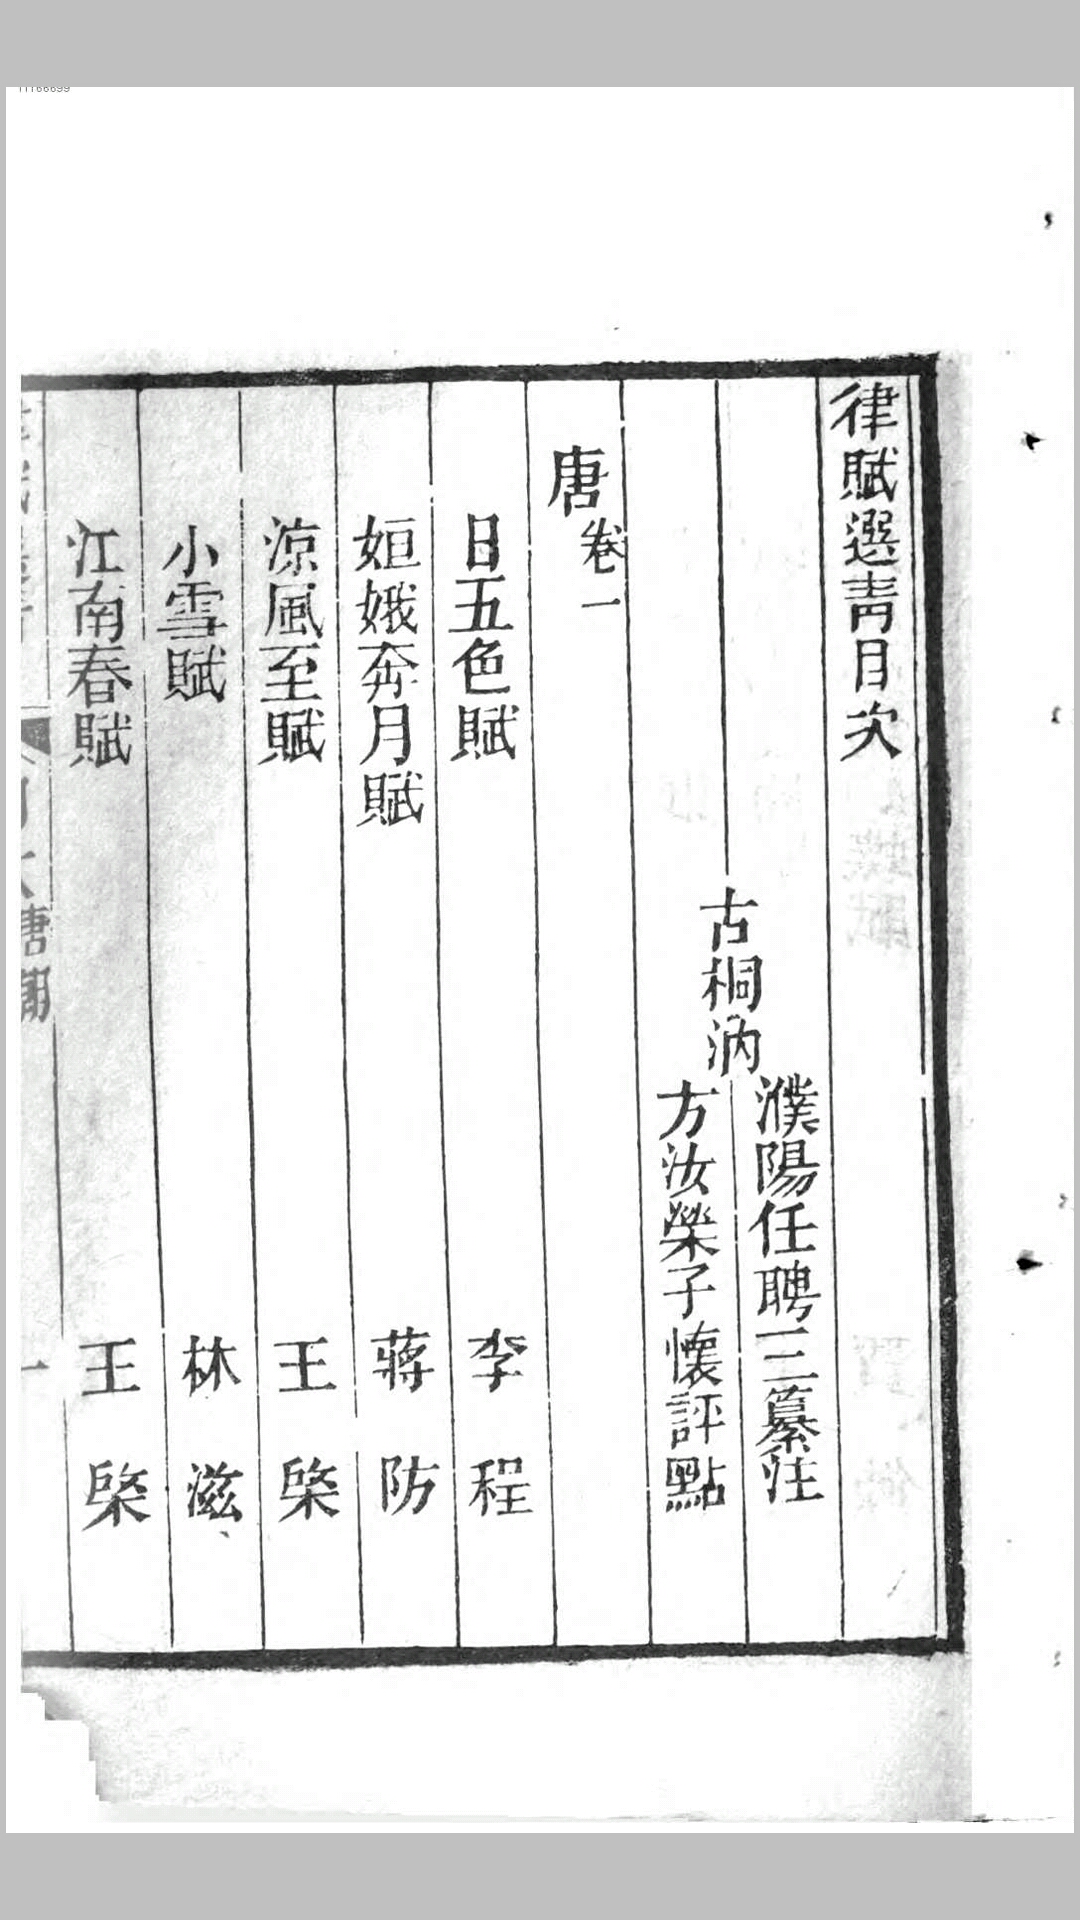 律賦選靑目次
古桐汭
濮陽任聘三纂注
方汝榮子懷評點
唐卷一
日五色賦 李程
姮娥奔月賦 蔣防
涼風至賦 王棨
小雪賦 林滋
江南春賦 王棨